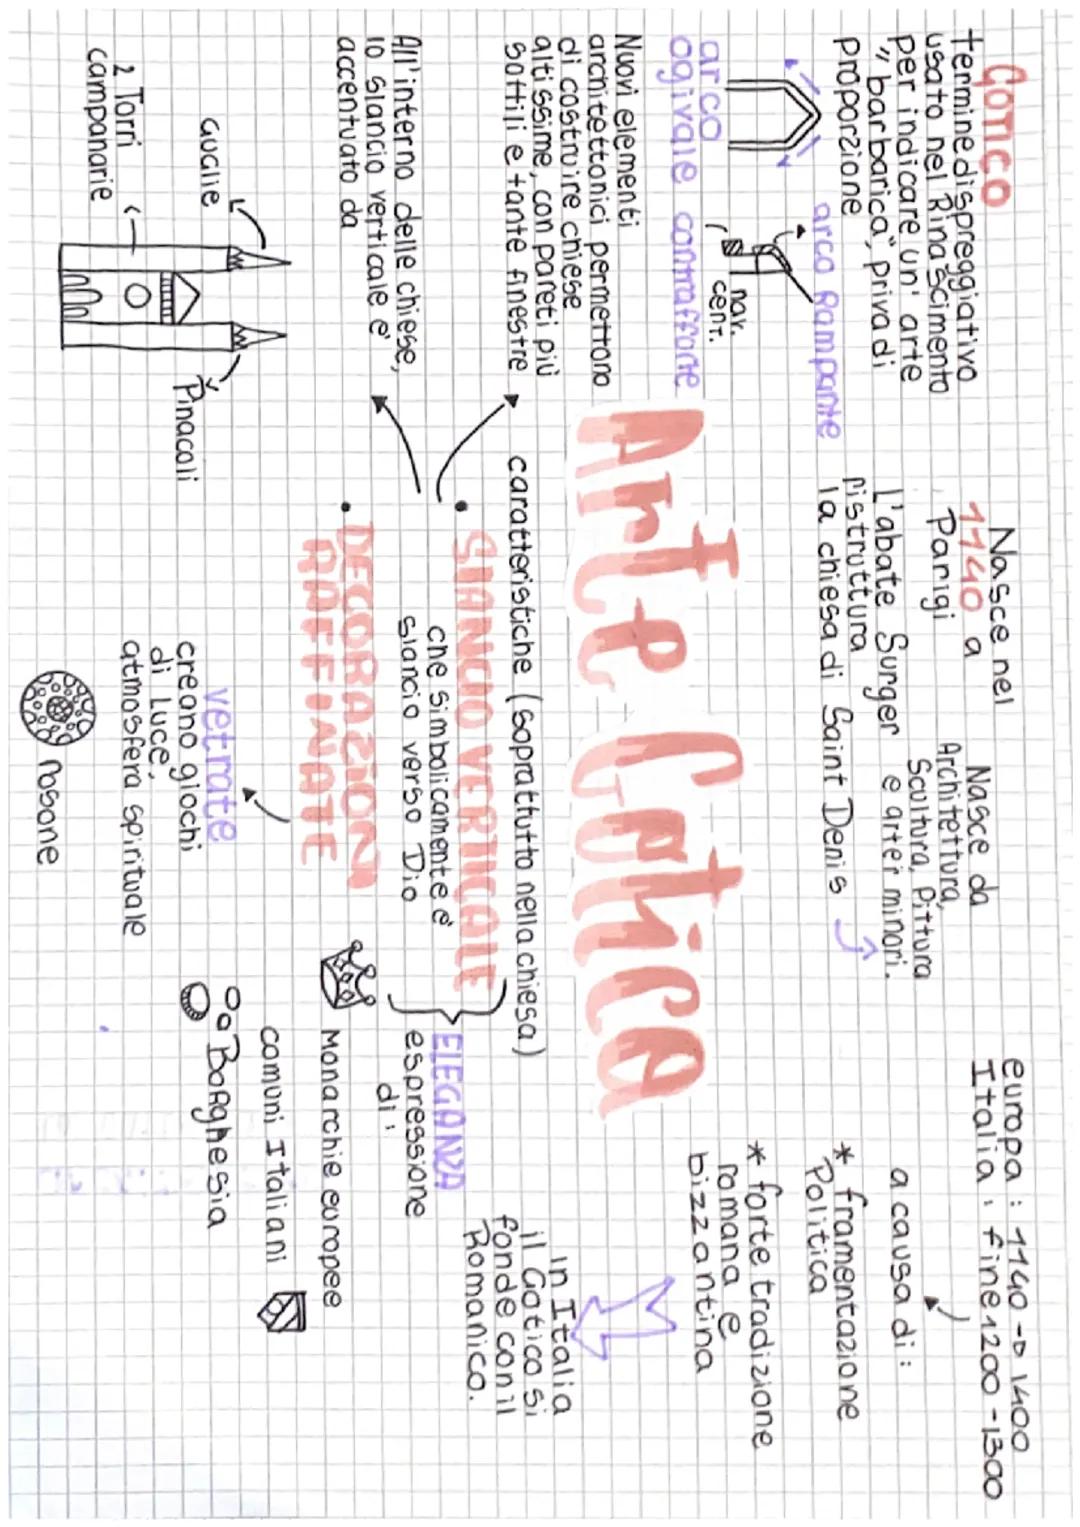 Gotico
termine dispreggiativo
usato nel Rinascimento
per indicare un' arte
"barbarica", priva di
proporzione
arco
ogivale
arco Rampante
nav.
cent.
contrafforte
Nuovi elementi
architettonici permettono
di costruire chiese
altissime, con pareti più
sottili e tante finestre
All'interno delle chiese,
lo slancio verticale e'
accentuato da
guglie
2 Torri
campanarie
Pinacoli
Nasce nel
1140 a
Parigi
L'abate Surger
ristruttura
la chiesa di Saint Denis
Nasce da
Architettura,
Scultura, Pittura
e arter minori.
europa : 1140 -> 1400
Italia : fine 1200 - 1300
a causa di :
* framentazione
Politica
* forte tradizione
romana e
bizzantina
In Italia
il Gotico si
fonde con il
Romanico.
Arte Gotica
caratteristiche (soprattutto nella chiesa)
• SLANCIO VERTICALE
che simbolicamente e'
slancio verso Dio
• DECORAZIONI
RAFFINATE
ELEGANZA
espressione
di :
Monarchie europee
comuni Italiani
Borghesia
vetrate
creano giochi
di Luce,
atmosfera spirituale
rosone